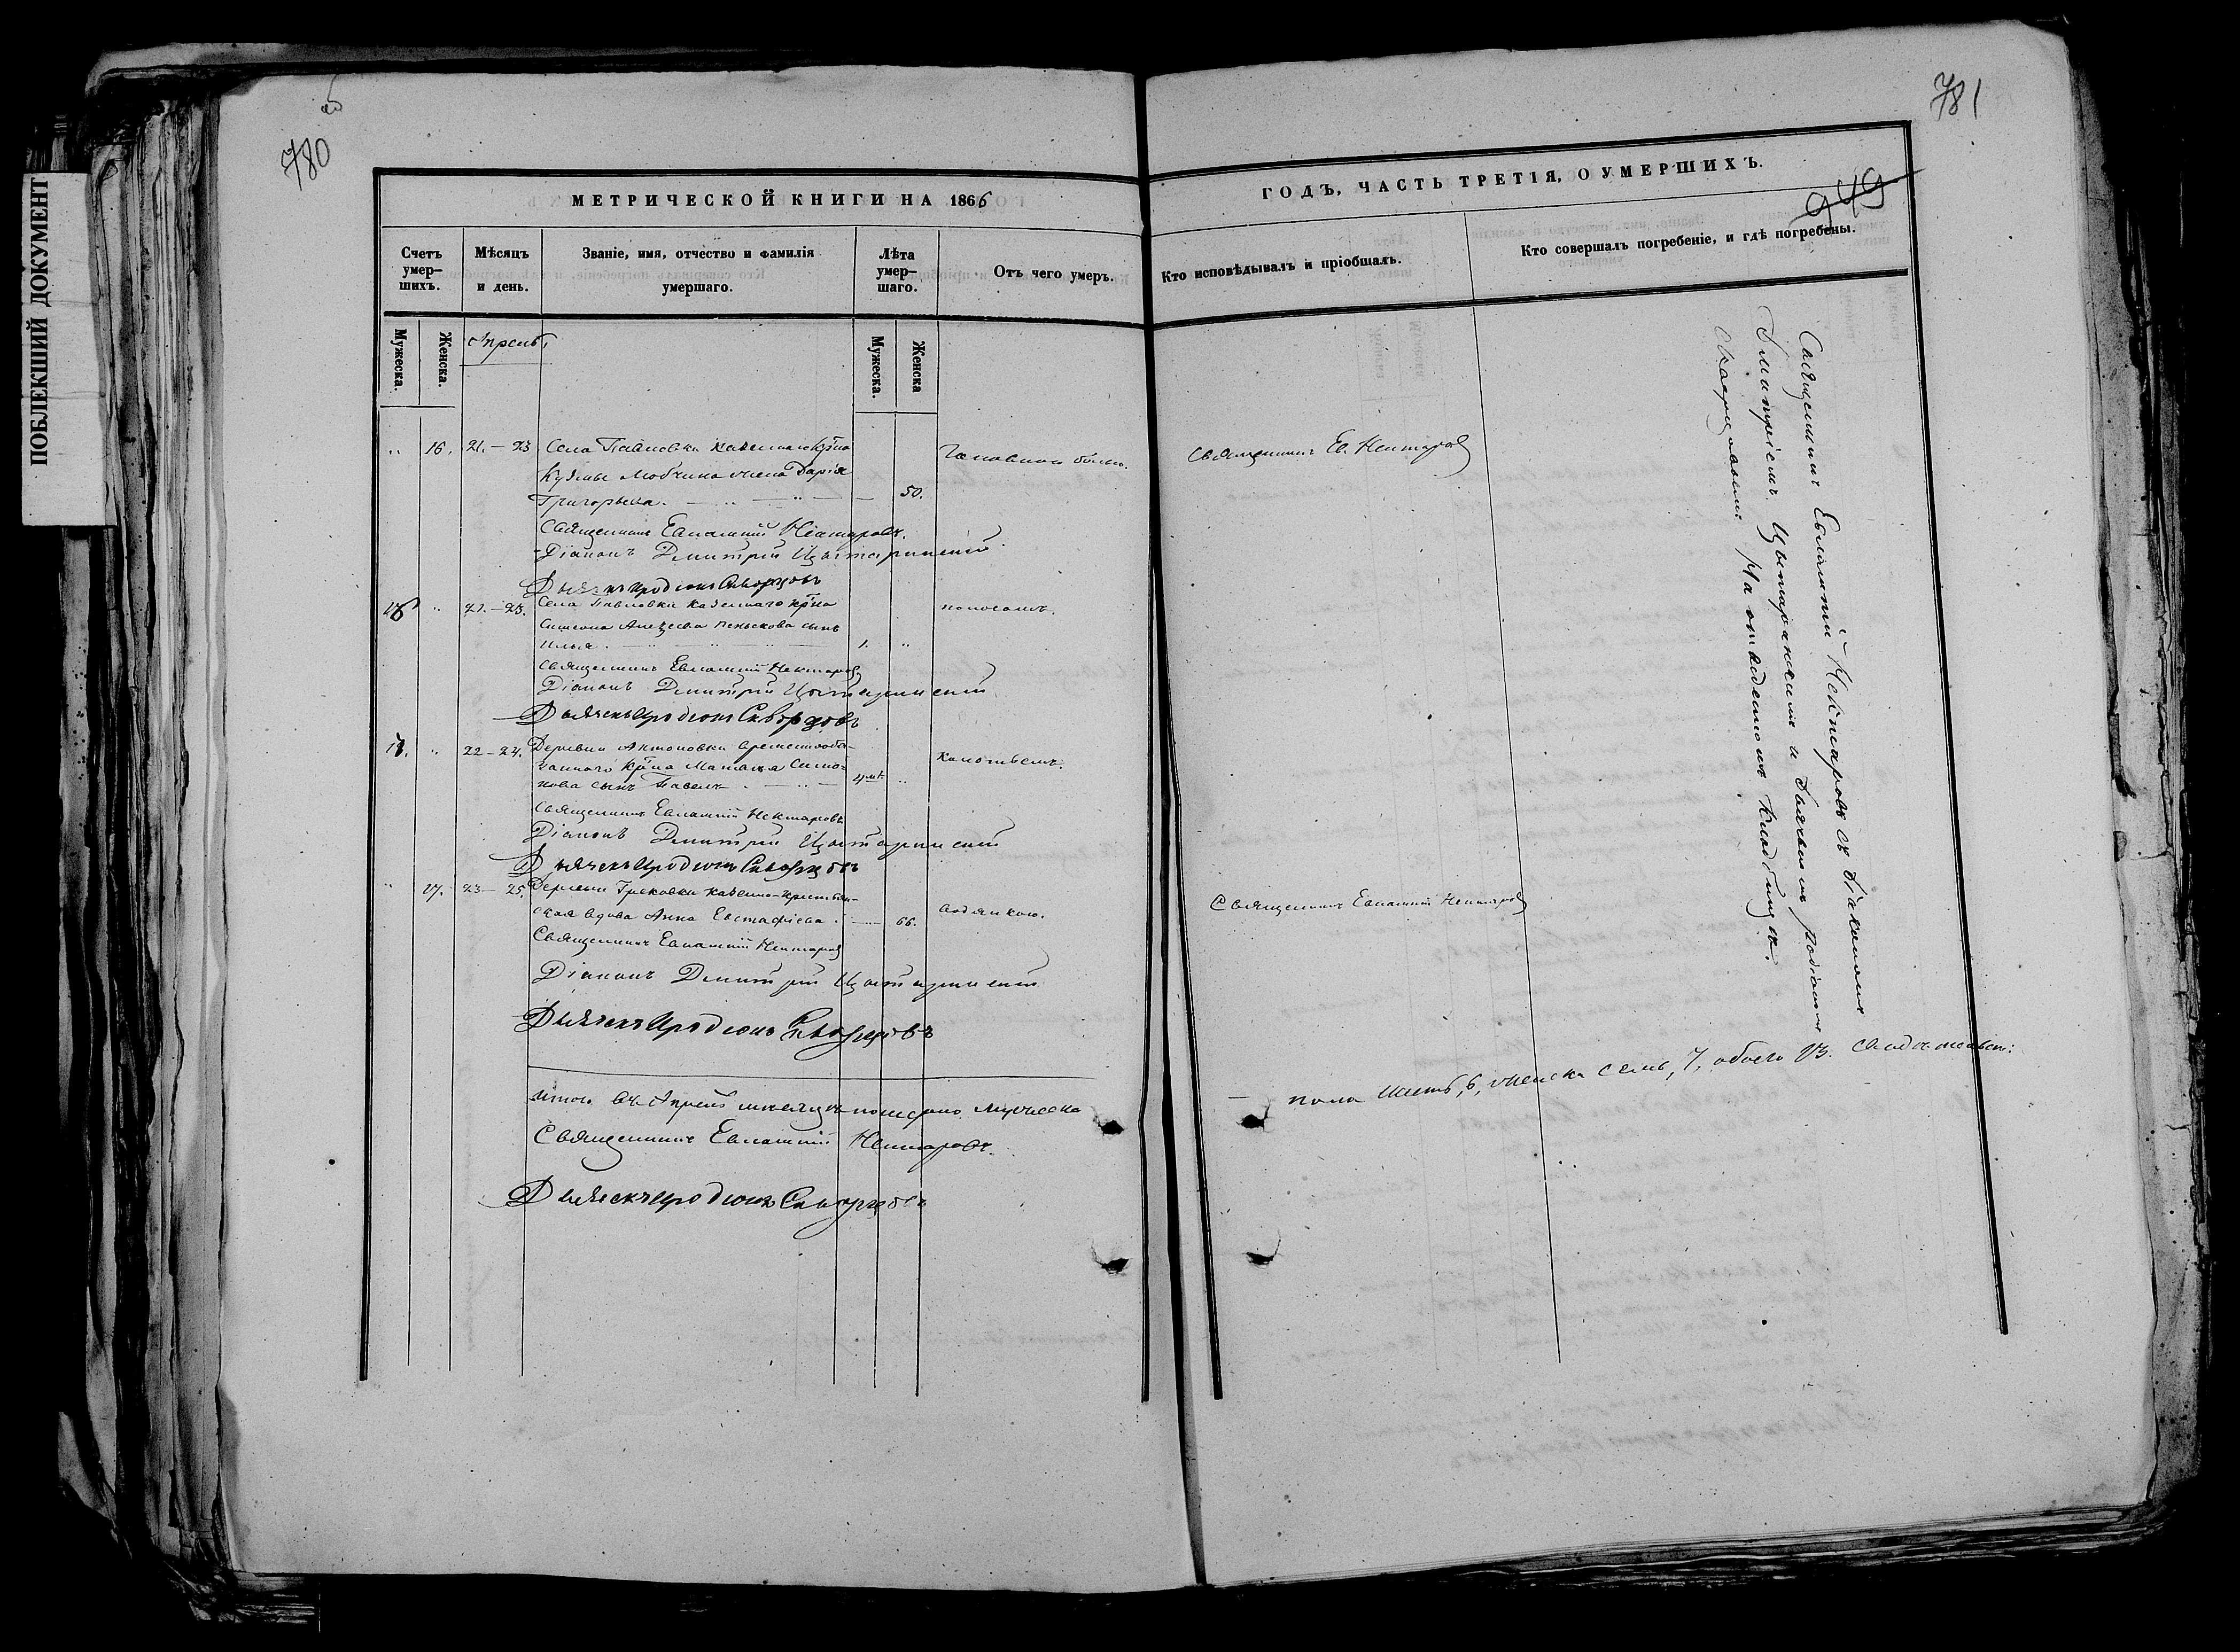 ПОБЛЕКШИЙ ДОКУМЕНТ
780
МЕТРИЧЕСКОЙ КНИГИ НА 1866
Счетъ умер-шихъ.
Мѣсяцъ и день.
Званіе, имя, отчество и фамилія умершаго.
Лѣта умер-шаго.
Отъ чего умеръ.
Мужеска.
Женска.
Апрель
Мужеска.
Женска
16. 21.–23 Села Павловки казеннаго кр̃на
Кузмы жена Дарія
Григорьева. 50.
Священникъ Евлампій Нектаровъ.
Діаконъ Дмитрій Цытаринскій
Дьячекъ Иродіонъ Скворцовъ
21.–23. Села Павловки казеннаго кр̃на
Симеона Алексѣева Пенькова сынъ
Илья. 1. поносомъ.
Священникъ Евлампій Нектаровъ
Діаконъ Дмитрій Цытаринскій
Дьячекъ Иродіонъ Скворцовъ
22–24. Деревни Антоновки временнообя-
заннаго кр̃на Симо-
нова сынъ Павелъ
Священникъ Евлампій Нектаровъ
Діаконъ Дмитрій Цытаринскій
Дьячекъ Иродіонъ Скворцовъ
17. 23–25. Деревни Грековки казенно-крестьян-
ская вдова Анна Евстафіева. 66. водянкою.
Священникъ Евлампій Нектаровъ
Діаконъ Дмитрій Цытаринскій
Дьячекъ Иродіонъ Скворцовъ
Итого въ Апрелѣ месяцѣ померло мужеска
Священникъ Евлампій Нектаровъ.
Дьячекъ Иродіонъ Скворцовъ
781
949
ГОДЪ, ЧАСТЬ ТРЕТІЯ, О УМЕРШИХЪ.
Кто исповѣдывалъ и пріобщалъ.
Кто совершалъ погребеніе, и гдѣ погребены.
Священникъ Ев. Нектаровъ
Священникъ Евлампій Нектаровъ
Священникъ Евлампій Нектаровъ съ Діакономъ
Димитріемъ Цытаринскимъ и дьячкомъ Родіономъ
Скворцовымъ На отведенномъ кладбищѣ.
пола шесть, 6, женска семь, 7, обоего 13.